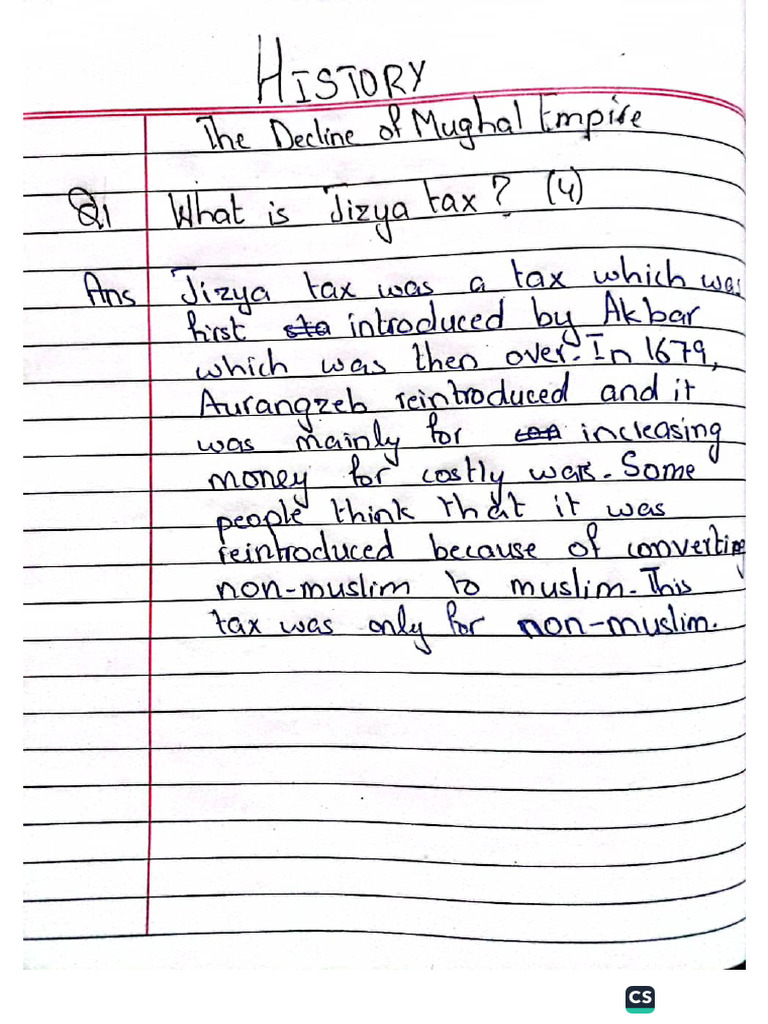 HISTORY
The Decline of Mughal Empire
Q1 What is Jizya tax? (4)
Ans Jizya tax was a tax which was
first sta introduced by Akbar
which was then over. In 1679,
Aurangzeb reintroduced and it
was mainly for increasing
money for costly wars. Some
people think that it was
reintroduced because of converting
non-muslim to muslim. This
tax was only for non-muslim.
CS